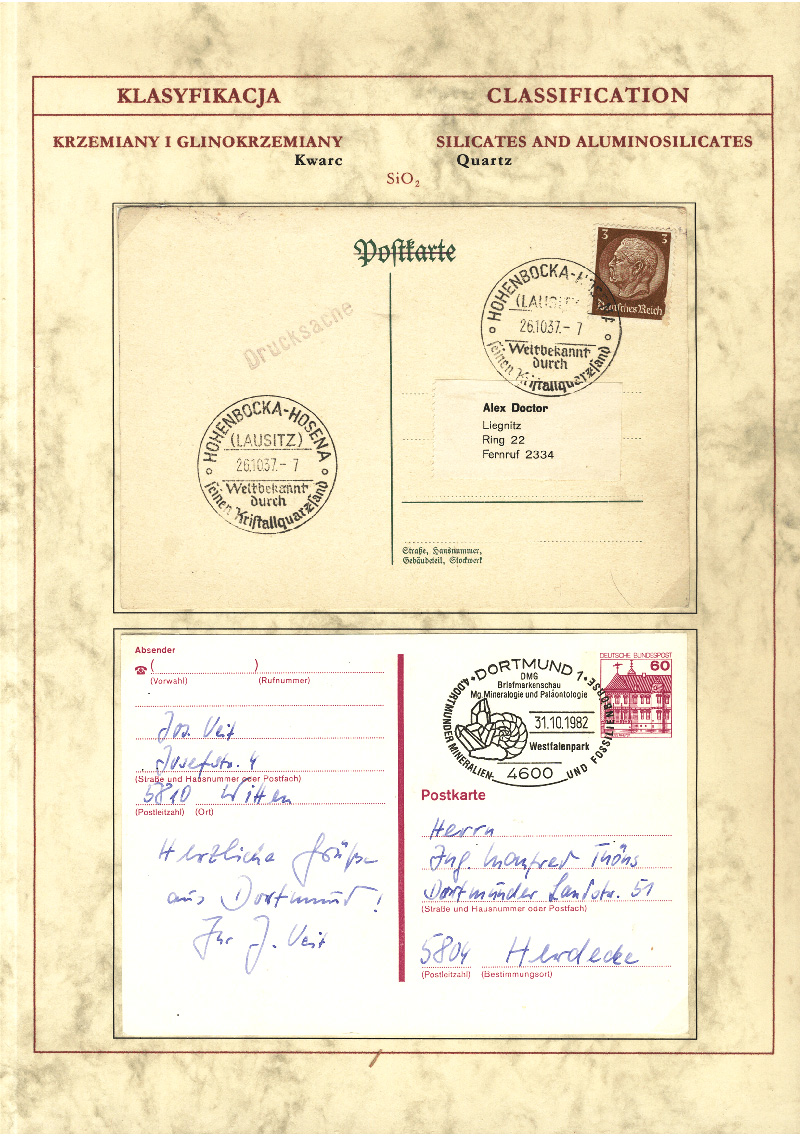 KLASYFIKACJA
CLASSIFICATION
KRZEMIANY I GLINOKRZEMIANY
Kwarc
SILICATES AND ALUMINOSILICATES
Quartz
SiO₂
Postkarte
3 3
Deutsches Reich
HOHENBOCKA-HOSENA
(LAUSITZ)
26.10.37.- 7
Weltbekannt
durch
seinen Kristallquarzsand
Drucksache
Alex Doctor
Liegnitz
Ring 22
Fernruf 2334
HOHENBOCKA-HOSENA
(LAUSITZ)
26.10.37.- 7
Weltbekannt
durch
seinen Kristallquarzsand
Straße, Hausnummer,
Gebäudeteil, Stockwerk
Absender
☎ ( )
(Vorwahl) (Rufnummer)
Jos. Veit
Josefstr. 4
(Straße und Hausnummer oder Postfach)
5810 Witten
(Postleitzahl) (Ort)
Herzliche Grüße
aus Dortmund!
Ihr J. Veit
DEUTSCHE BUNDESPOST
60
DORTMUND 1
DMG
Briefmarkenschau
Mg. Mineralogie und Paläontologie
31.10.1982
Westfalenpark
4600
4. DORTMUNDER MINERALIEN- UND FOSSILIENBÖRSE
Postkarte
Herrn
Ing. Manfred Thöns
Dortmunder Landstr. 51
(Straße und Hausnummer oder Postfach)
5804 Herdecke
(Postleitzahl) (Bestimmungsort)